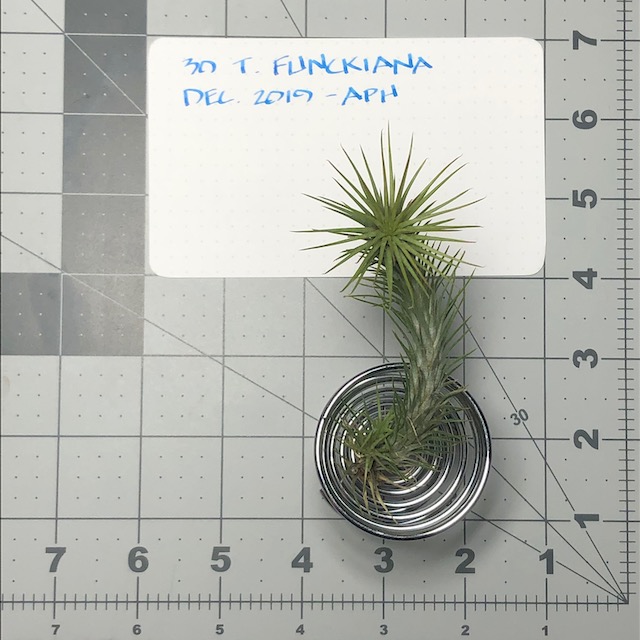 30 T. FUNCKIANA
DEC. 2019 - APH
7
6
5
4
3
2
1
30
7 6 5 4 3 2 1
7 6 5 4 3 2 1